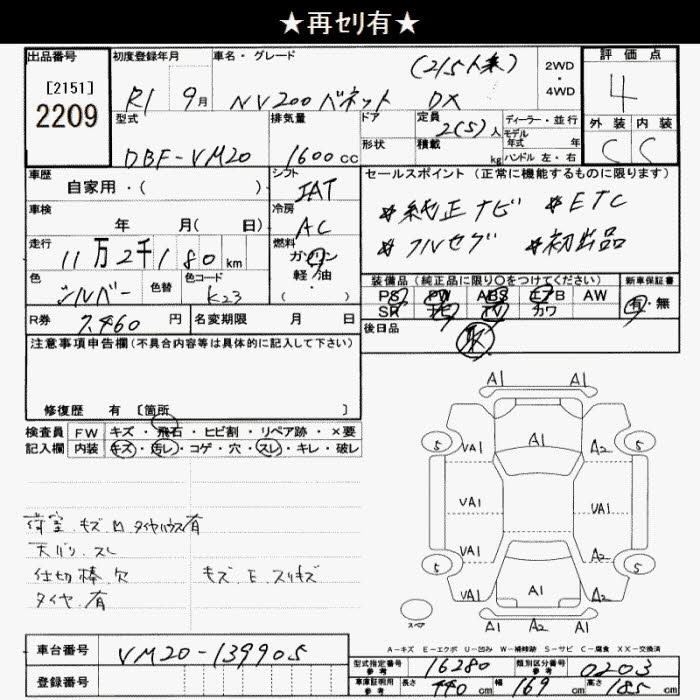 ★再ｾﾘ有★
出品番号
[2151]
2209
初度登録年月
R1 9月
車名・グレード
(215人乗)
NV200 バネット DX
2WD
・
4WD
評価点
4
外装 内装
C C
型式
DBF-VM20
排気量
1600cc
ドア
形状
定員
2(5)人
積載
kg
ディーラー・並行
モデル
年式 年
ハンドル 左・右
車歴
自家用・( )
シフト
IAT
車検
年 月( 日)
冷房
AC
走行
11万2千180km
燃料
ガソリン
軽・油
・
( )
色
シルバー
色替
色コード
K23
セールスポイント (正常に機能するものに限ります)
☆純正ナビ ☆ETC
☆フルセグ ☆初出品
装備品 (純正品に限り○をつけてください)
PS PW ABS エアB AW
SR ナビ TV カワ
新車保証書
有・無
後日品
取
R券
7,460円
名変期限 月 日
注意事項申告欄(不具合内容等は具体的に記入して下さい)
修復歴 有 [箇所 ]
検査員
記入欄
FW キズ・飛石・ヒビ割・リペア跡・×要
内装 キズ・汚レ・コゲ・穴・スレ・キレ・破レ
荷室 キズ M タイヤハウス有
天バリ スレ
仕切棒 欠
キズ E スリキズ
タイヤ 有
A1 A1
5 VA1 A1 A2 5
VA1 VA1
VA1 A2
5 VA1 A1 A2 5
A1 A1 A2
スペア
A-キズ E-エクボ U-凹み W-補修跡 S-サビ C-腐食 XX-交換済
車台番号
VM20-139905
登録番号
型式指定番号
参考
16280
類別区分番号
参考
0203
車庫証明用
参考
長さ 440cm 幅 169cm 高さ 185cm